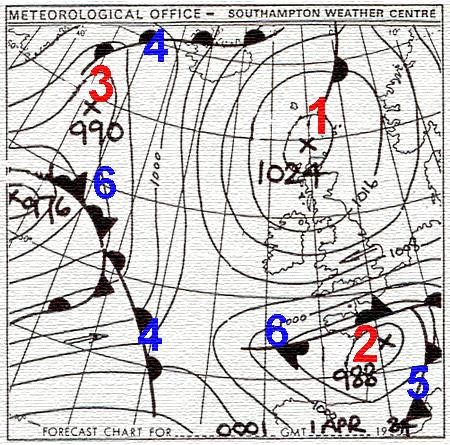 METEOROLOGICAL OFFICE – SOUTHAMPTON WEATHER CENTRE
4
3
990
1
1024
1000
1016
6
976
1008
4
000
6
2
988
5
1008
FORECAST CHART FOR 0001 GMT 1 APR 1984